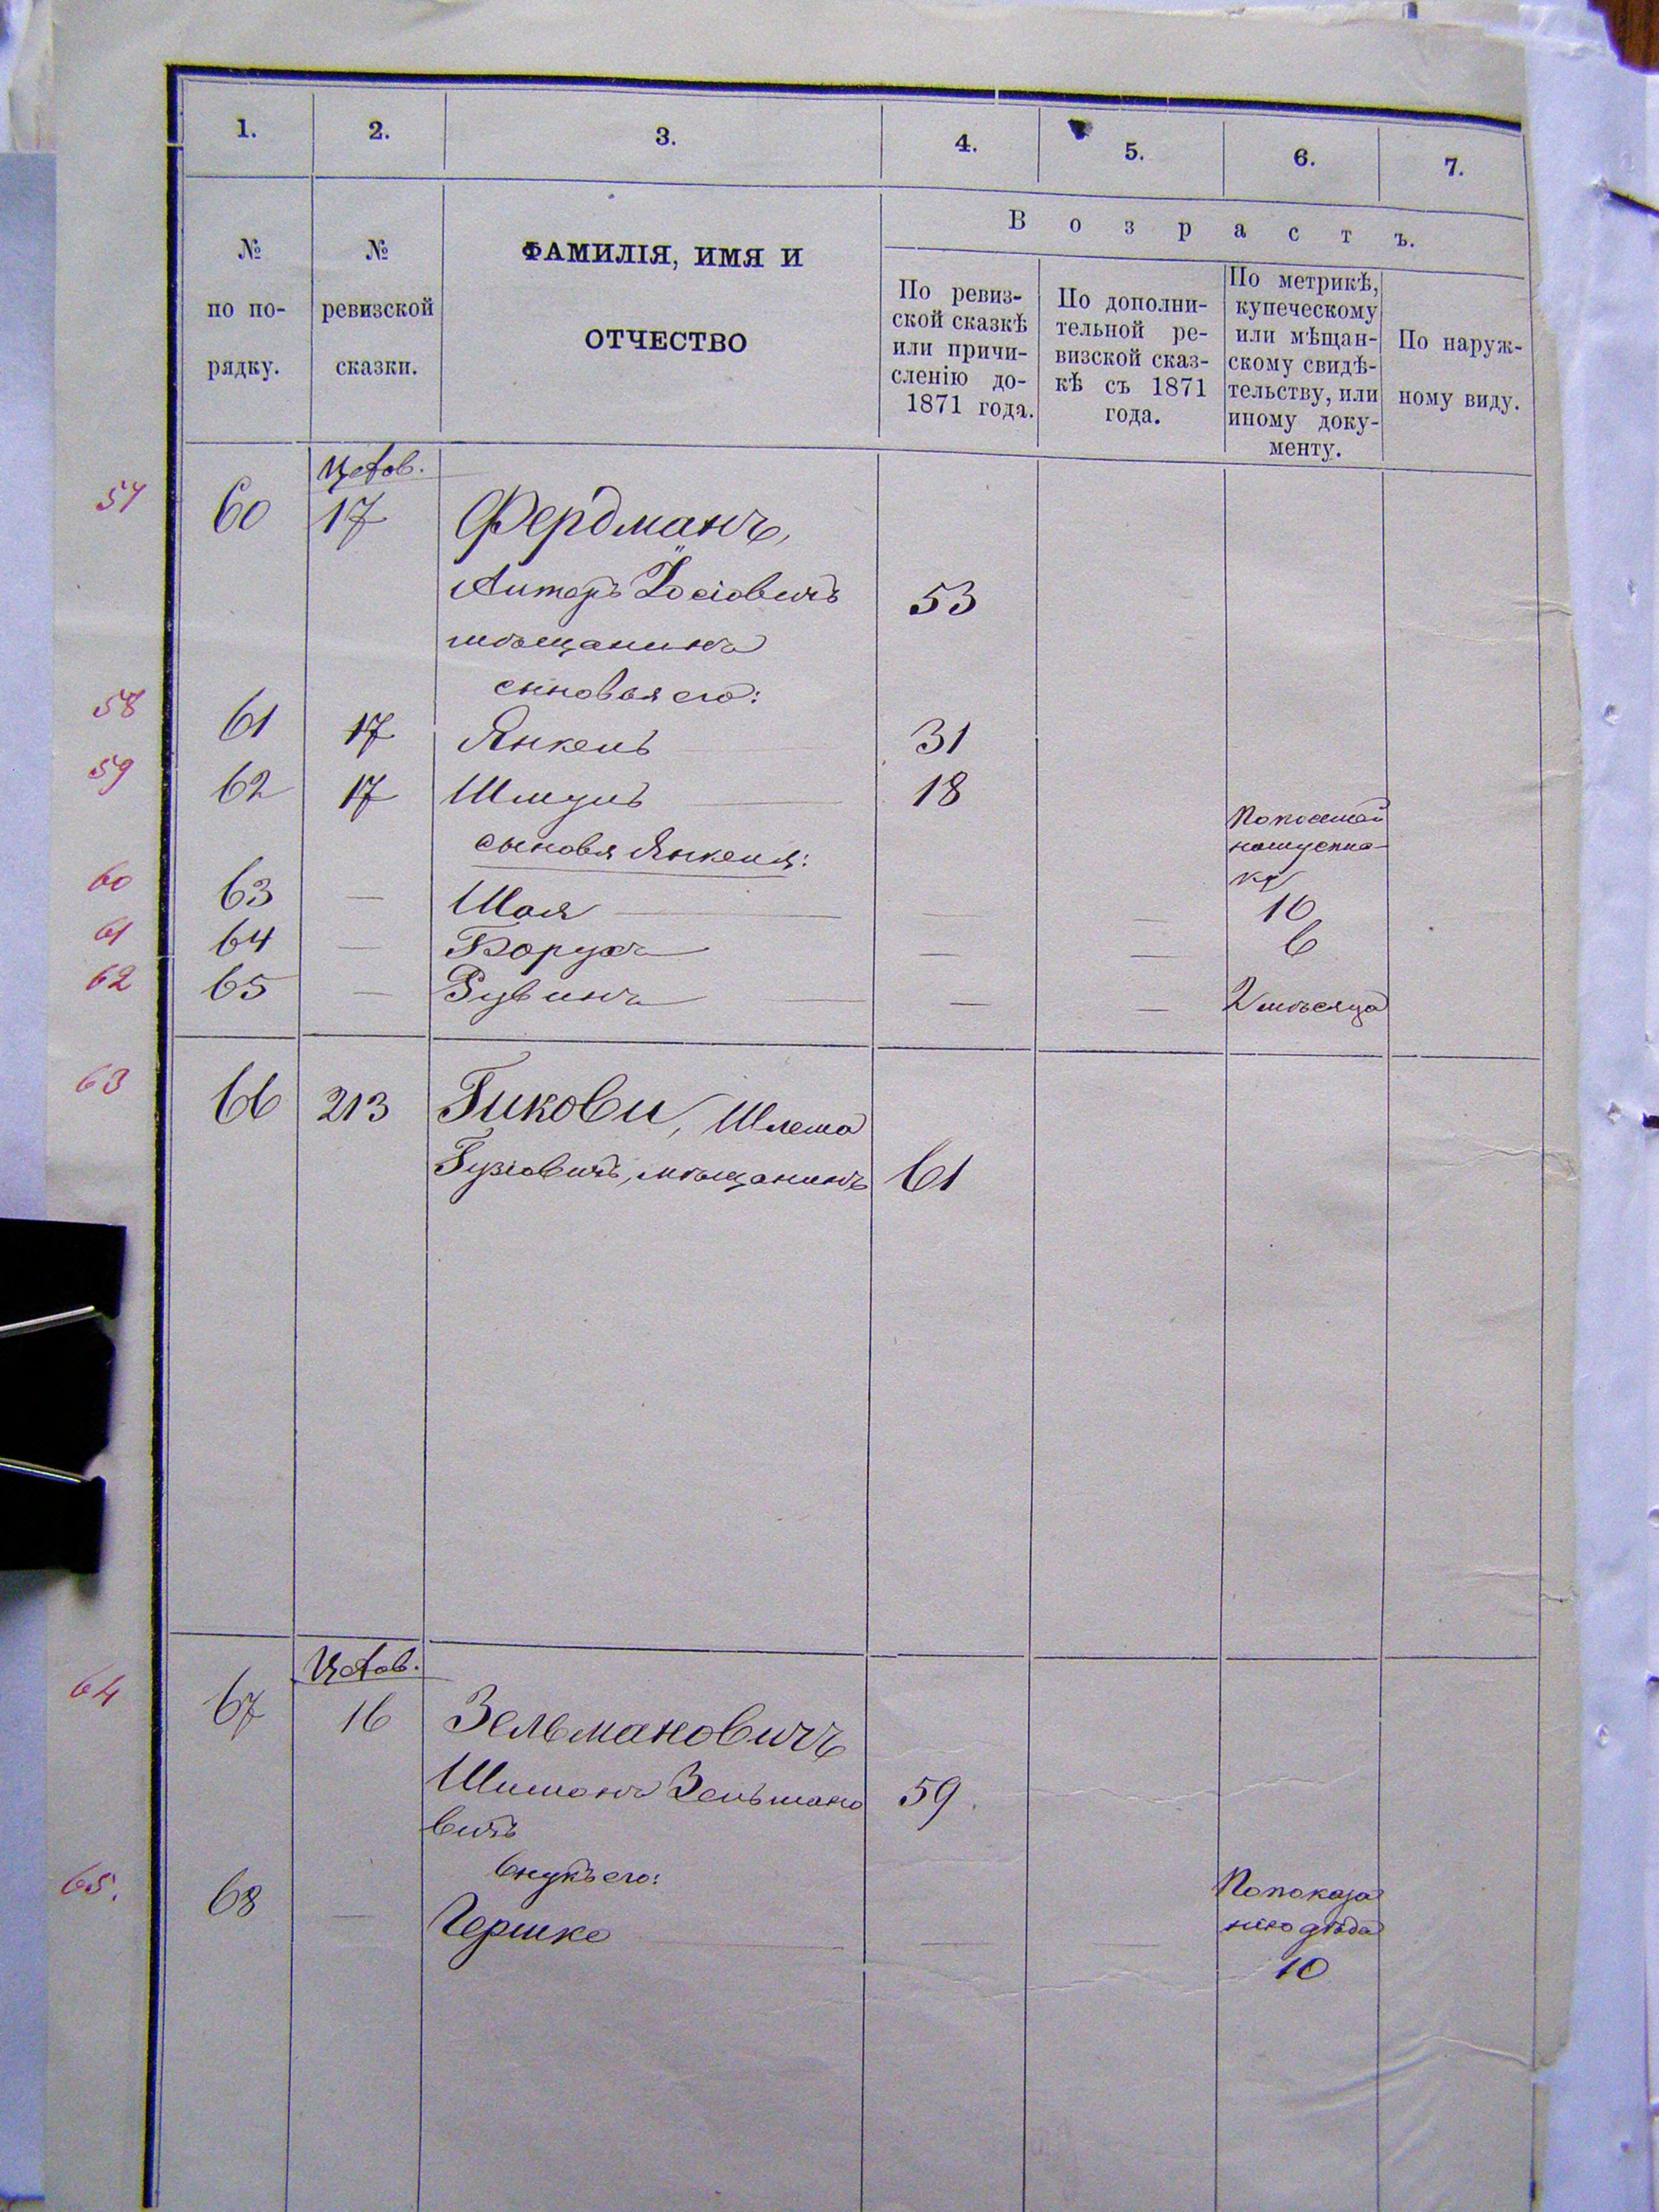 1. 2. 3. 4. 5. 6. 7.
№ по порядку.
№ ревизской сказки.
ФАМИЛІЯ, ИМЯ И
ОТЧЕСТВО
В о з р а с т ъ.
По ревиз-
ской сказкѣ
или причи-
сленію до-
1871 года.
По дополни-
тельной ре-
визской сказ-
кѣ съ 1871
года.
По метрикѣ,
купеческому
или мѣщан-
скому свидѣ-
тельству, или
иному доку-
менту.
По наруж-
ному виду.
57 60 17 Фердманъ,
Іосіовичъ 53
мѣщанинъ
сыновья его:
58 61 17 Янкель 31
59 62 17 Шмуль 18
сыновя Янкеля:
60 63 — Шая — — 10
61 64 — Борухъ — — 6
62 65 — Рувинъ — — 2 мѣсяца
63 66 213 Гикови, Шлема
Гузіовичъ, мѣщанинъ 61
64 67 16 Зельмановичъ
Шимонъ Зельмано
вичъ 59.
внукъ его:
По показа
нію дѣда
65. 68 — Гершко — — 10